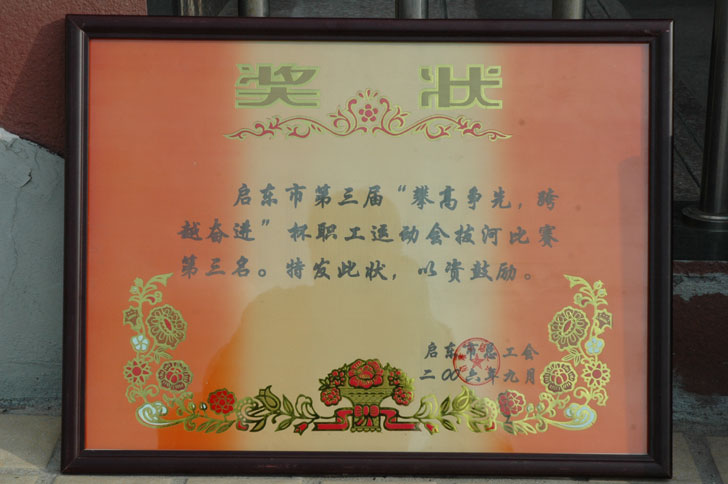 奖状
启东市第三届“攀高争先，跨
越奋进”杯职工运动会拔河比赛
第三名。特发此状，以资鼓励。
启东市总工会
二〇〇六年九月